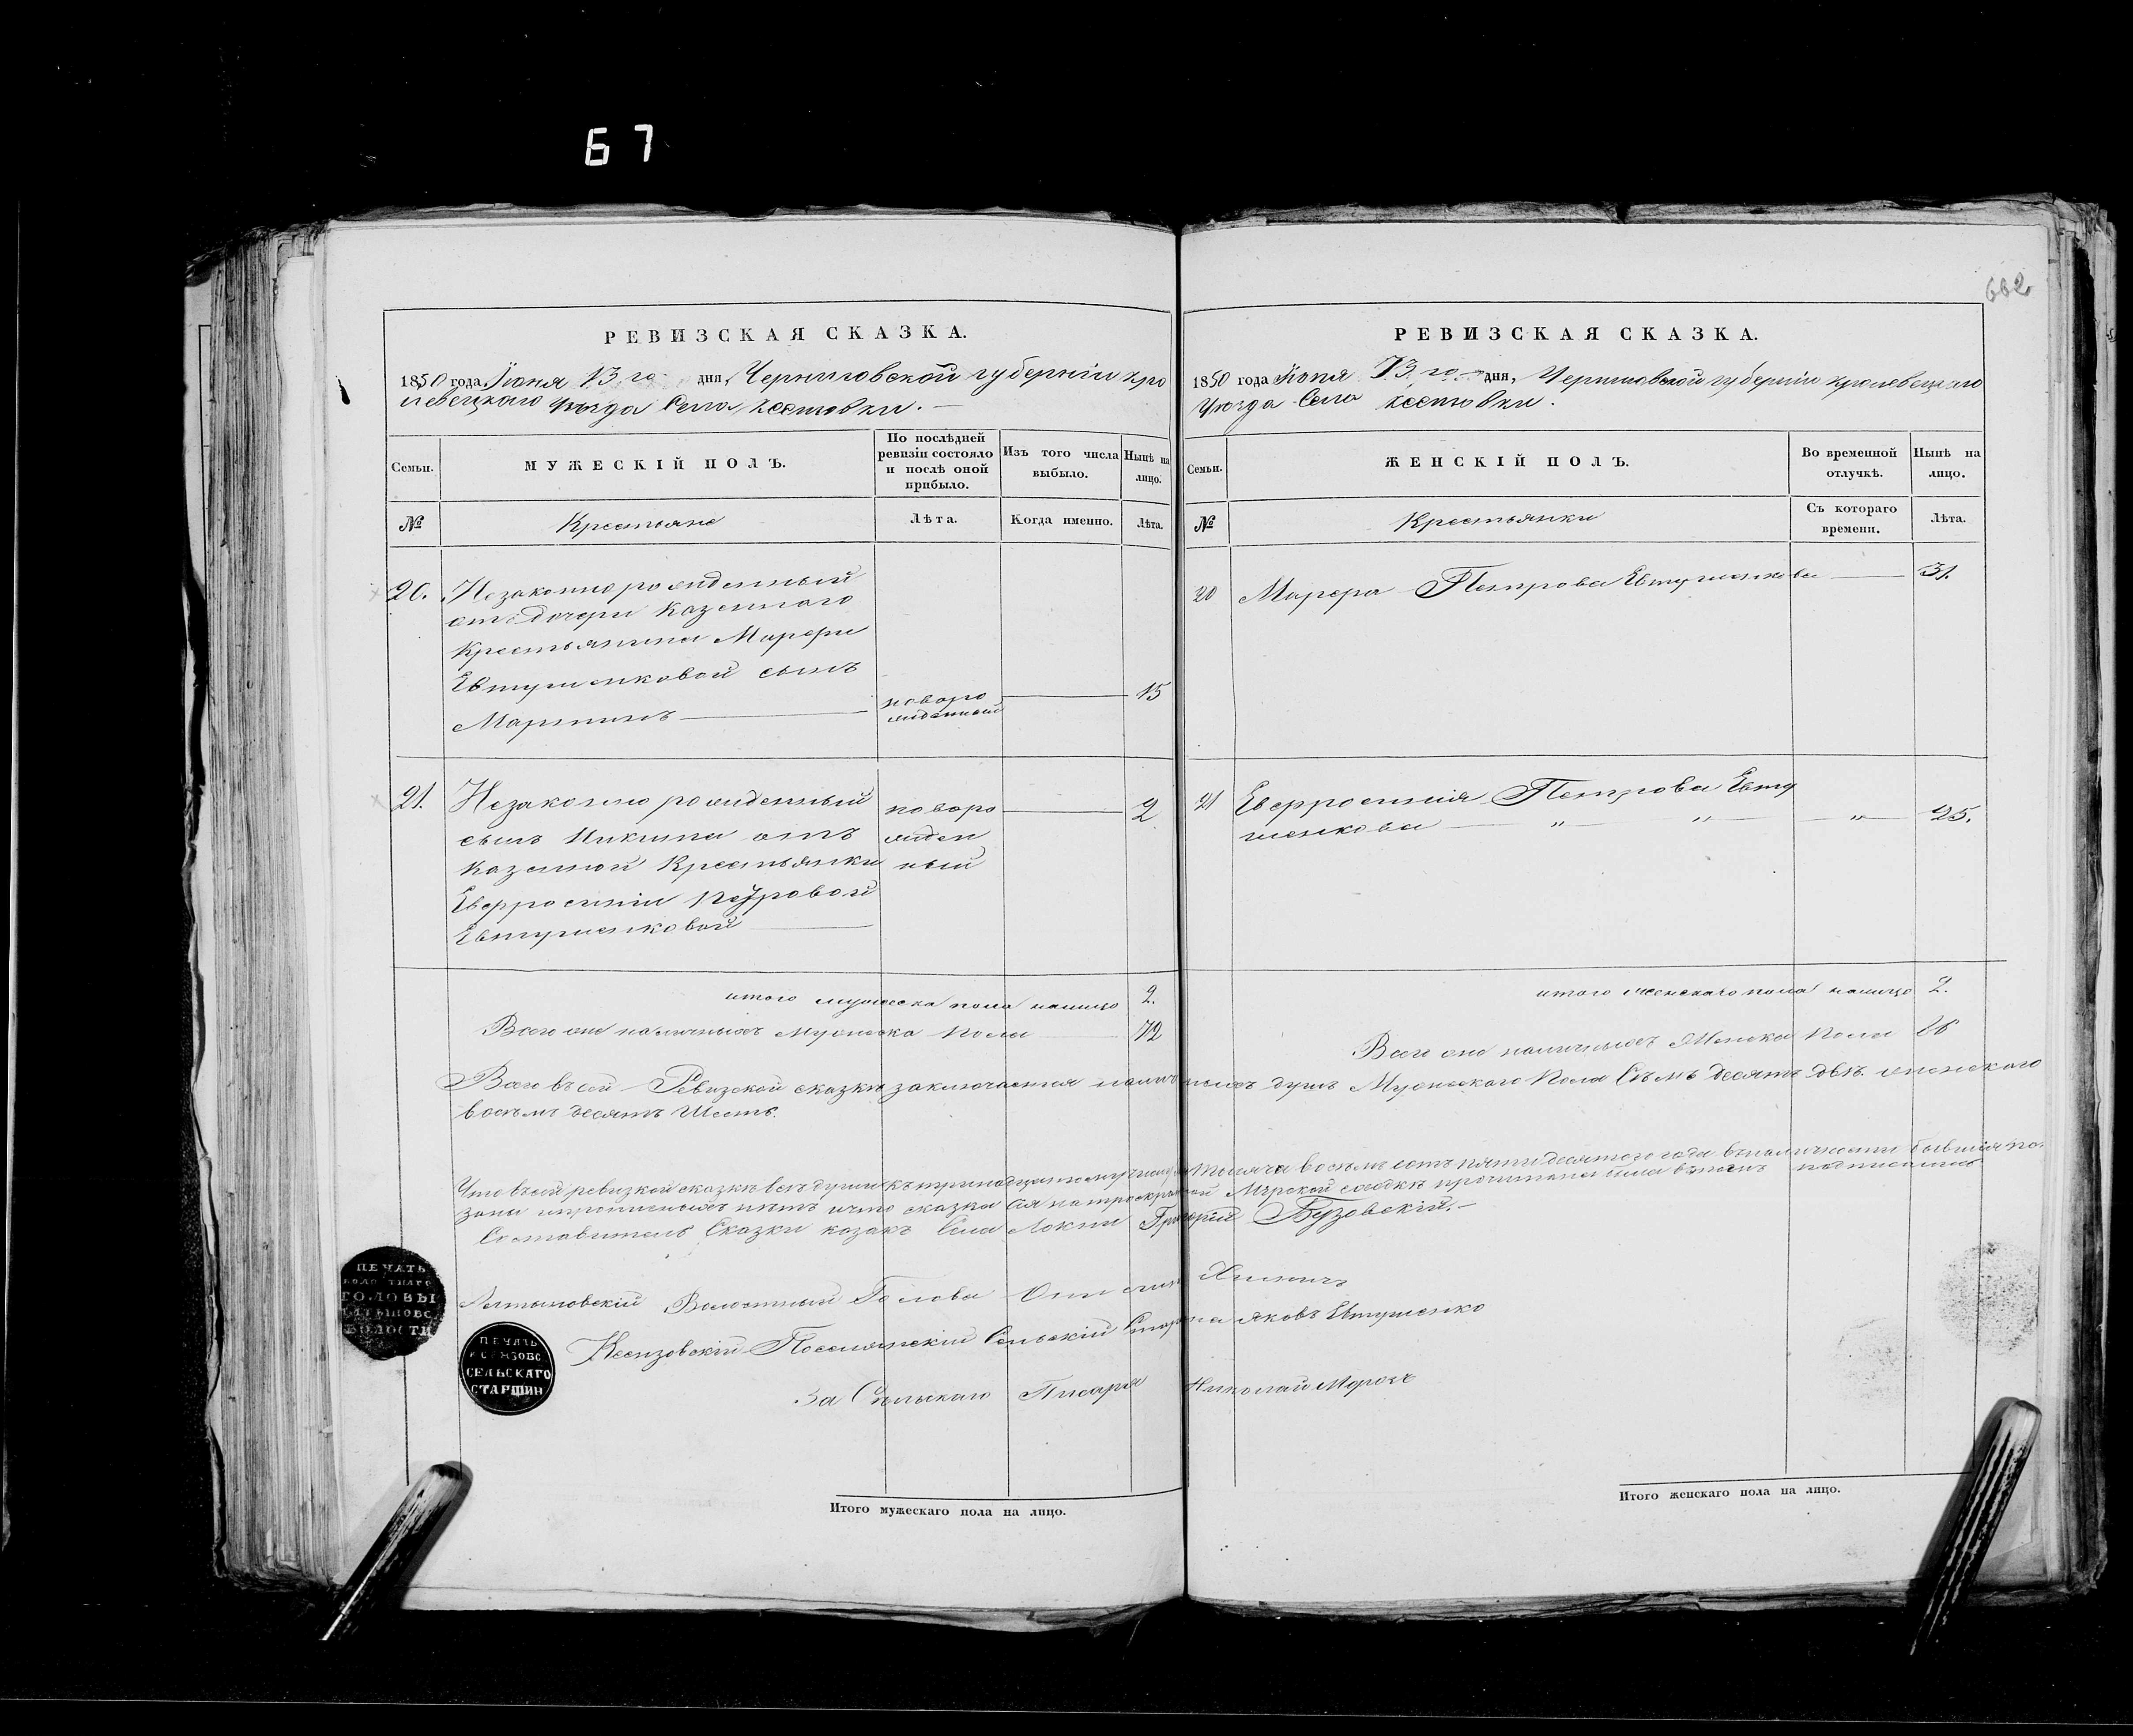 67
662
РЕВИЗСКАЯ СКАЗКА.
1850 года Июня 13 го дня, Черниговской губерніи Кро
левецкаго Уѣзда Села
МУЖЕСКІЙ ПОЛЪ.
Семьи.
По послѣдней
ревизіи состояло
и послѣ оной
прибыло.
Изъ того числа
выбыло.
Нынѣ на
лицо.
№
Крестьяне
Лѣта.
Когда именно.
Лѣта.
20. Незаконнорожденный
отъ дочери Казенного
Крестьянина Марфи
Евтушенковой сынъ
Мартинъ
новоро
жденный
15
21. Незаконно рожденный
сынъ Никита отъ
Казенной Крестьянки
Евфросиніи Петровой
Евтушенковой
новоро
жден
ный
2
итого мужеска пола налицо 2.
Всего оно наличныхъ мужеска пола 72
РЕВИЗСКАЯ СКАЗКА.
1850 года Июня 13 го дня, Черниговской губерніи Кролевецкаго
Уѣзда Села
Семьи.
ЖЕНСКІЙ ПОЛЪ.
Во временной
отлучкѣ.
Нынѣ на
лицо.
№
Крестьянки
Съ котораго
времени.
Лѣта.
20 Марфа Петрова Евтушенкова 31.
21 Евфросинія Петрова Евту
шенкова " " " 25.
итого женскаго пола налицо 2.
Всего оно наличныхъ Женска пола 86
Всего въ сей Ревизской сказкѣ заключается наличныхъ душъ Мужескаго Пола Семь десять двѣ. женскаго
восемь десятъ Шесть.
Что въ сей ревизкой сказкѣ всѣ души къ тринадцатому числу Июня тысяча восемь сотъ пятидесятого года въ наличности бывшія по
заны и прописныхъ нѣтъ и что сказка сія на Мирской сходкѣ прочитана была въ томъ подписался
Составитель Сказки казакъ Села Локни Григорій Бузовскій.
Волостный Голова
Поселянскій Сельскій Старшина Яковъ Евтушенко
За Сельскаго Писаря Николай Морозъ
ПЕЧАТЬ
ГОЛОВЫ
ВОЛОСТИ
ПЕЧАТЬ
СЕЛЬСКАГО
СТАРШИН
Итого мужескаго пола на лицо.
Итого женскаго пола на лицо.